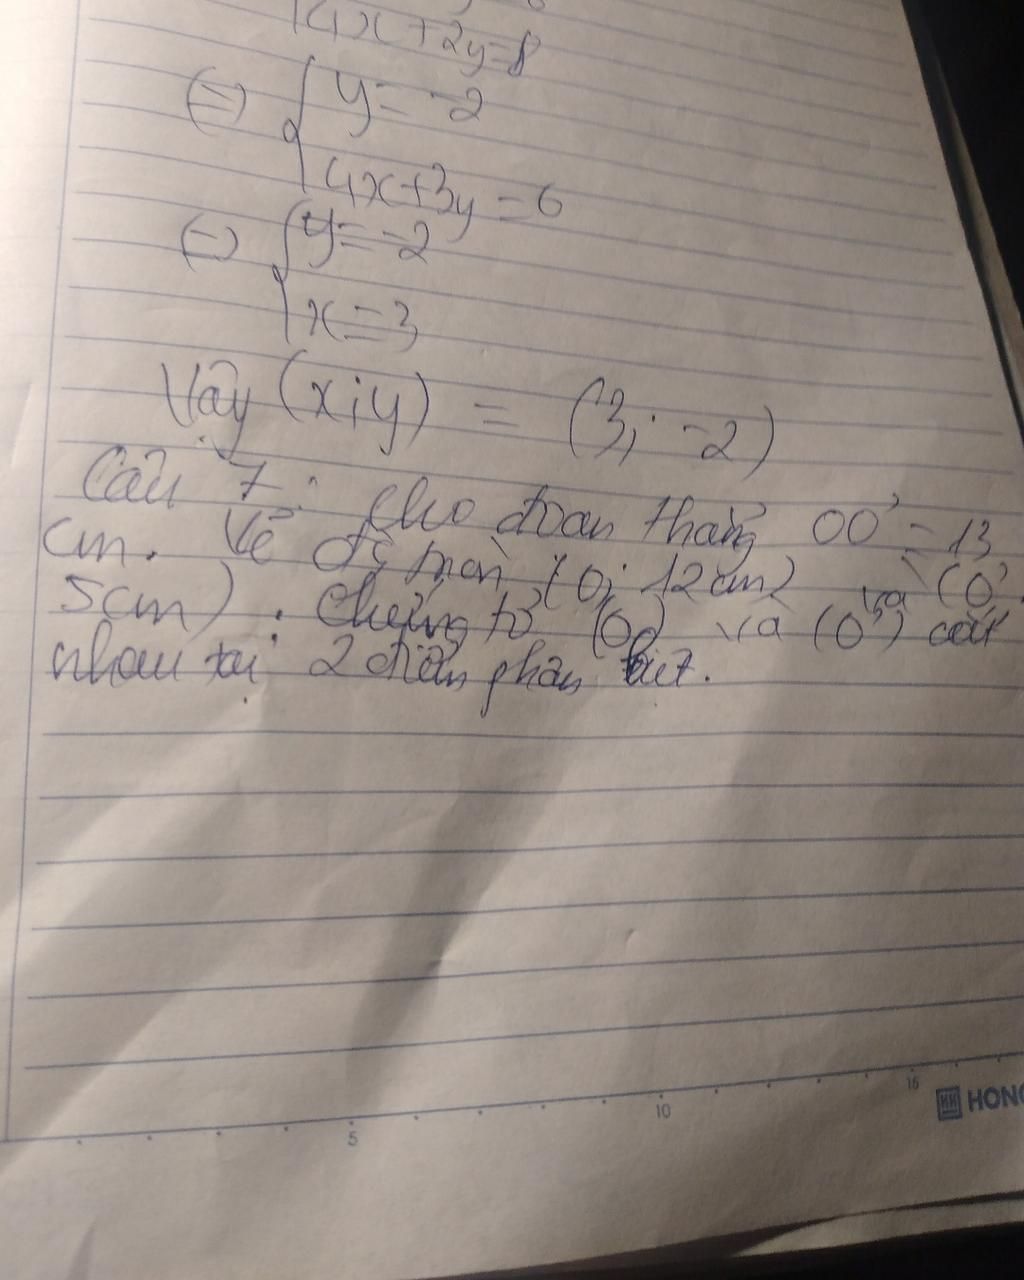 4x+2y=8
(=) { y = -2
4x+3y = 6
(=) { y = -2
x = 3
Vậy (x;y) = (3; -2)
Câu 7: Cho đoạn thẳng OO' = 13
cm. Vẽ đg tròn (O; 12cm) và (O';
5cm). Chứng tỏ (O) và (O') cắt
nhau tại 2 điểm phân biệt.
5 10 15
HONG